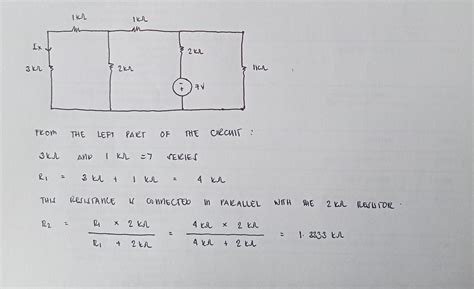 1kΩ 1kΩ
Ix 2kΩ
3kΩ 2kΩ 1kΩ
9V
FROM THE LEFT PART OF THE CIRCUIT :
3kΩ AND 1 kΩ => SERIES
R1 = 3 kΩ + 1 kΩ = 4 kΩ
THIS RESISTANCE IS CONNECTED IN PARALLEL WITH THE 2 kΩ RESISTOR.
R2 = R1 × 2 kΩ / R1 + 2 kΩ = 4 kΩ × 2 kΩ / 4 kΩ + 2 kΩ = 1.3333 kΩ